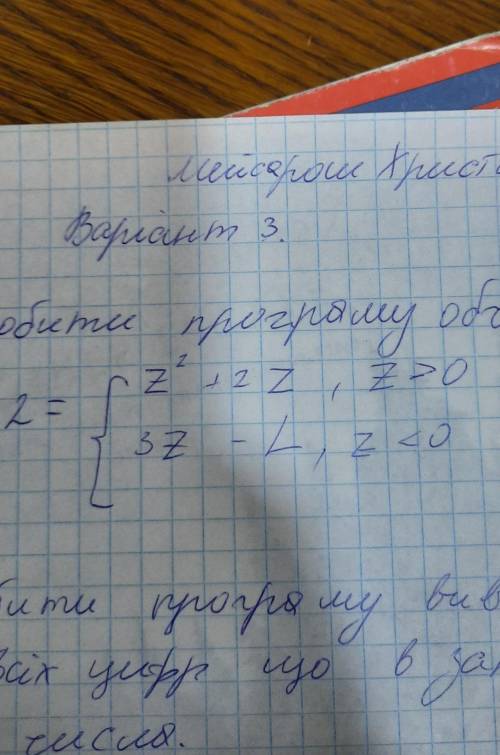 Мейсарош Христ
Варіант 3.
обити програму обч
2 = { z² + 2z , z > 0
3z - L , z < 0
бити програму вив
всіх цифр що в за
числа.